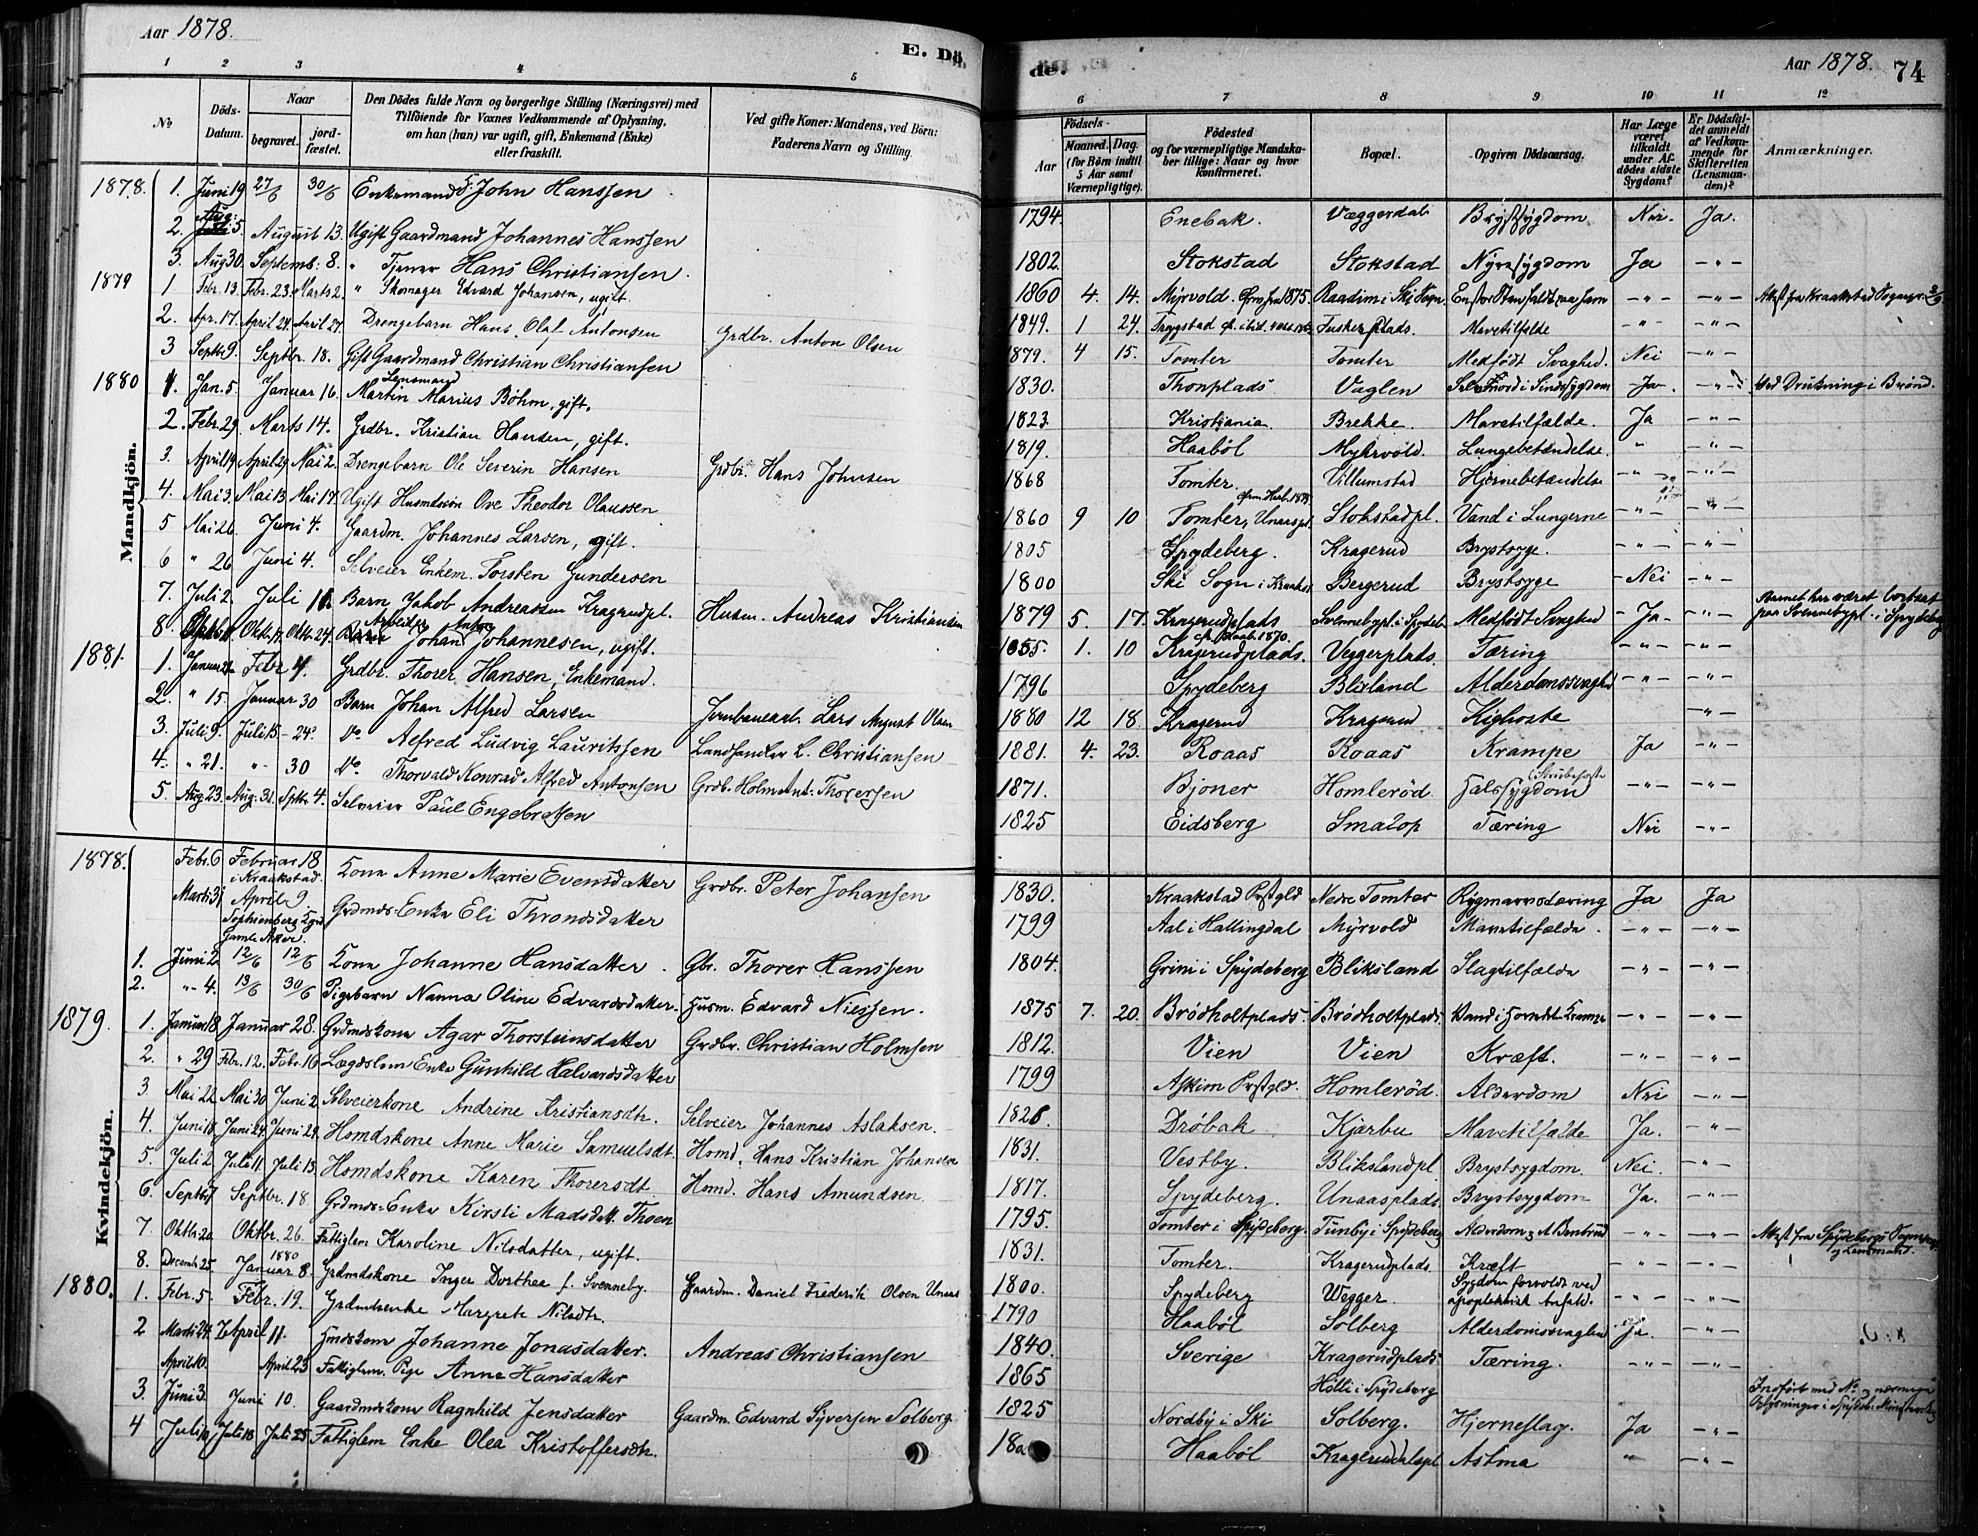 Aar 1878.
E. Dö
1 2 3 4 5
Naar
№
Döds-Datum.
begravet.
jord-fæstet.
Den Dödes fulde Navn og borgerlige Stilling (Næringsvei) med
Tilføiende for Voxnes Vedkommende af Oplysning,
om han (hun) var ugift, gift, Enkemand (Enke)
eller fraskilt.
Ved gifte Koner: Mandens, ved Börn:
Faderens Navn og Stilling.
Mandkjön.
1878. 1. Juni 19 27/6 30/6 Enkemand John Hanssen
2. Aug: 5. August 13. Ugift Gaardmand Johannes Hanssen
3. Aug 30. Septemb: 8. " Tjener Hans Christiansen.
1879 1 Febr. 13. Febr. 23. Marts 2. " Skomager Edvard Johansen, ugift.
2. Apr. 17. April 24. April 27. Drengebarn Hans Olaf Antonsen Grdbr. Anton Olsen
3 Septbr 9. Septbr. 18. Gift Gaardmand Christian Christiansen
1880 1. Jan. 5 Januar 16. Lensmand Martin Marius Böhm, gift.
2. Febr. 29. Marts 14. Grdbr. Kristian Hansen, gift.
3. April 19. April 29. Mai 2. Drengebarn Ole Severin Hansen Grdbr. Hans Johnsen
4. Mai 3. Mai 13. Mai 17. Ugift Husmdssön Ove Theodor Olaussen
5 Mai 26. Juni 4. Gaardm. Johannes Larsen, gift.
6 " 26 Juni 4. Selveier Enkem. Torsten Gundersen
7. Juli 2. Juli 11. Barn Jakob Andreassen Kragrudpl. Husm. Andreas Kristiansen
8. Oktbr. Oktbr. 24. Arbeider Johan Anton Johannesen, ugift.
1881. 1. Januar Febr 4. Grdbr. Thorer Hansen, Enkemand.
2. " 15. Januar 30 Barn Johan Alfred Larsen Jernbanearb. Lars August Olsen
3. Juli 9. Juli 15 - 24. Do. Alfred Ludvig Lauritssen Landhandler L. Christiansen
4. " 21. " - 30 Do. Thorvald Konrad Alfred Antonsen Grdb. Holm Ant. Thorersen
5. Aug 23. Aug. 31. Sptbr. 4. Selveier Paul Engebretsen
Kvindekjön.
1878. Febr. 6 Februar 18 i Kraakstad. Kone Anne Marie Evensdatter Grdbr. Peter Johansen
Marts 31 April 9. Sophienberg Kgrd Gamle Aker. Grdmds-Enke Eli Throndsdatter
1. Juni 2 12/6 12/6 Kone Johanne Hansdatter. Gbr. Thorer Hanssen
2. " - 4. 13/6 30/6 Pigebarn Nanna Oline Edvardsdatter. Husm. Edvard Nielsen.
1879. 1. Januar 18. Januar 28. Grdmdskone Agar Thorsteinsdatter Grdbr. Christian Holmsen
2. " 29 Febr. 12. Febr. 16 Lægdslem Enke Gunhild Halvardsdatter
3 Mai 22. Mai 30 Juni 2 Selveierkone Andrine Kristiansdtr. Selveier Johannes Aslaksen.
4. Juni 18. Juni 24. Juni 29. Homdskone Anne Marie Samuelsdt. Homd. Hans Kristian Johansen
5. Juli 2 Juli 11. Juli 13. Homdskone Karen Thorersdt. Homd. Hans Amundsen.
6. Septbr 7 Septbr. 18 Grdmds-Enke Kirsti Madsdatt. Thoen
7. Oktbr. 20. Oktbr. 26. Fattiglem Karoline Nilsdatter, ugift.
8. Decemb. 25. 1880 Januar 8. Grdmdskone Inger Dorthea f. Svenneby. Gaardm. Daniel Frederik Olsen Unaas
1880. 1. Febr. 5. Febr. 19. Grdmdsenke Margrete Nilsdtr.
2 Marts 24. April 11. Hmdskone Johanne Jonasdatter. Andreas Christiansen
April 10. April 23 Fattiglem. Pige Anne Hansdatter
3. Juni 3. Juni 10. Gaardmdskone Ragnhild Jensdatter Gaardm. Edvard Syversen Solberg
4 Juli 10 Juli 18 Juli 25 Fattiglem Enke Olea Kristoffersdtr.
de.
Aar 1878. 74
6 7 8 9 10 11 12
Födsels-
Aar
Maaned. Dag.
(for Börn indtil
5 Aar samt
Værnepligtige).
Födested
og for værnepligtige Mandska-
ber tillige: Naar og hvor
konfirmeret.
Bopæl.
Opgiven Dödsaarsag.
Har Læge
været
tilkaldt
under Af-
dödes sidste
Sygdom?
Er Dödsfal-
det anmeldt
af Vedkom-
mende for
Skifteretten
(Lensman-
den)?
Anmærkninger.
1794. Enebak. Væggerdal Brystsygdom Nei. Ja.
1802. Stokstad Stokstad Nyresygdom Ja - " -
1860 4. 14. Myrvold. 1875. Raadim i Ski Sogn - " - - " - Attest fra Kraakstad Sognepr.
1849. 1 24. Trygstad Fusker Plads. Mavetilfælde - " - - " -
1879. 4 15. Tomter Tomter Medfödt Svaghed. Nei - " -
1830. Thonplads Vaglen Selvmord i Sindssygdom Ja - " - Ved Drukning i Brönd.
1823. Kristiania Brekke Mavetilfælde. Ja - " -
1819. Haaböl Myhrvold. Lungebetændelse. " - " -
1868 Tomter. Villumstad Hjernebetændelse - " - - " -
1860 9 10 Tomter, Unaaspl. Stokstadpl. Vand i Lungerne - " - - " -
1805 Spydeberg. Kragerud Brystsyge. - " - - " -
1800 Ski Sogn i Kraakst. Bergerud Brystsyge - Nei - " -
1879 5. 17. Kragerudplads Svennebypl. i Spydeb. Medfödt Svaghed - Ja - - " - Barnet har været bortsat paa Svennebypl. i Spydeberg
1855. 1. 10 Kragerudplads. 1870. Veggerplads. Tæring - " - - " -
1796 Spydeberg Blixland Alderdomssvaghed - " - - " -
1880 12 18. Kragerud Kragerud Kighoste - " -
1881. 4. 23. Roaas Roaas Krampe Ja - " -
1871. Bjoner Homleröd. Halssygdom (Strubehoste) - " - - " -
1825 Eidsberg Smalop Tæring Nei - " -
1830. Kraakstad Prstgld Nedre Tomter Rygmarvstæring Ja Ja
1799 Aal i Hallingdal Myrvold Mavetilfælde. - " - - " -
1804. Grini i Spydeberg Bliksland Slagtilfælde - " - - " -
1875 7. 20. Brödholtplads. Brödholtplads. Vand i Hovedet. Krampe - " - - " -
1812. Vien Vien Kræft. - " - - " -
1799 Askim Prstgld. Homleröd. Alderdom Nei - " -
1828. Dröbak Kjærbu Mavetilfælde Ja. - " -
1831. Vestby. Blikslandpl. Brystsygdom. Nei. - " -
1817. Spydeberg. Unaasplads Brystsygdom Ja. - " -
1795. Tomter i Spydeberg. Tunby i Spydeberg Alderdom - " - - " - Attest fra Spydebergs Sognepr. og Lensmand.
1831. Tomter. Kragerudplads Kræft - " - - " -
1800. Spydeberg Wegger. Sygdom forvoldt ved apoplektisk Anfald. - " - - " -
1790 Haaböl Solberg Alderdomssvaghed Ja. - " -
1840. Sverige Kragerudplads Tæring. - " - - " -
1865 Hölli i Spydeberg Indfört med No. 3, nærmere Oplysninger i Spydeb.
1825 Nordby i Ski Solberg. Hjerneslag. Ja - " -
18 Haaböl Kragerudplspl Astma " - " -